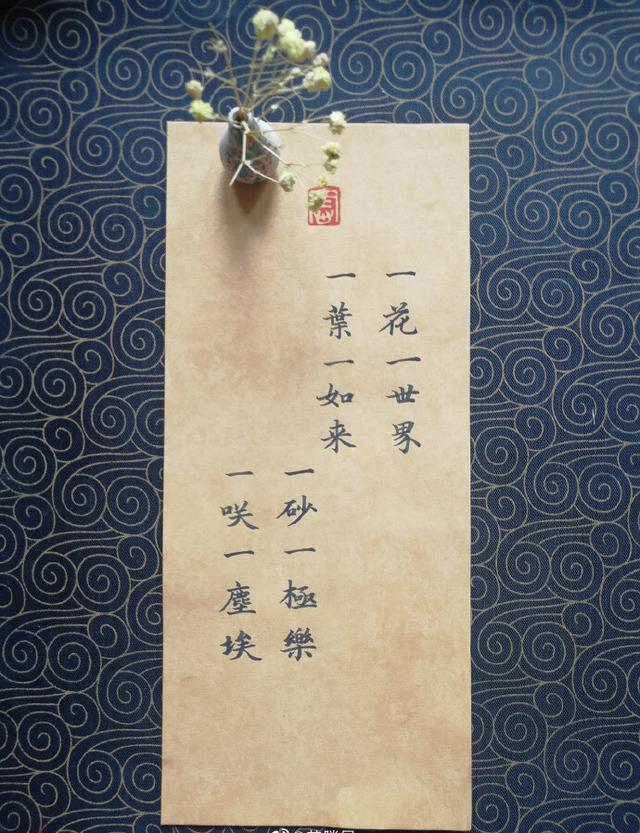 一花一世界
一葉一如来
一砂一極樂
一咲一塵埃